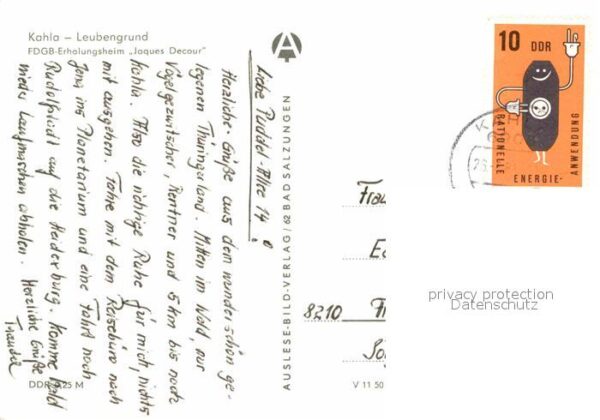 Kahla – Leubengrund
FDGB-Erholungsheim „Jaques Decour"
Liebe Puddel-Allee 14!
Herzliche Grüße aus dem wunderschön ge-
legenen Thüringerland. Mitten im Wald, nur
Vogelgezwitscher, Rentner und 5 km bis nach
Kahla. Also die richtige Ruhe für mich, nichts
mit ausgehen. Fahre mit dem Reisebüro nach
Jena ins Planetarium und eine Fahrt nach
Rudolstadt auf die Heidecksburg. Komme bald
wieder Laufmaschen abholen.
Herzliche Grüße
Traudel
DDR 0,25 M
AUSLESE-BILD-VERLAG / 62 BAD SALZUNGEN
V 11 50
10 DDR
RATIONELLE ENERGIE-
ANWENDUNG
Frau
8210
privacy protection
Datenschutz